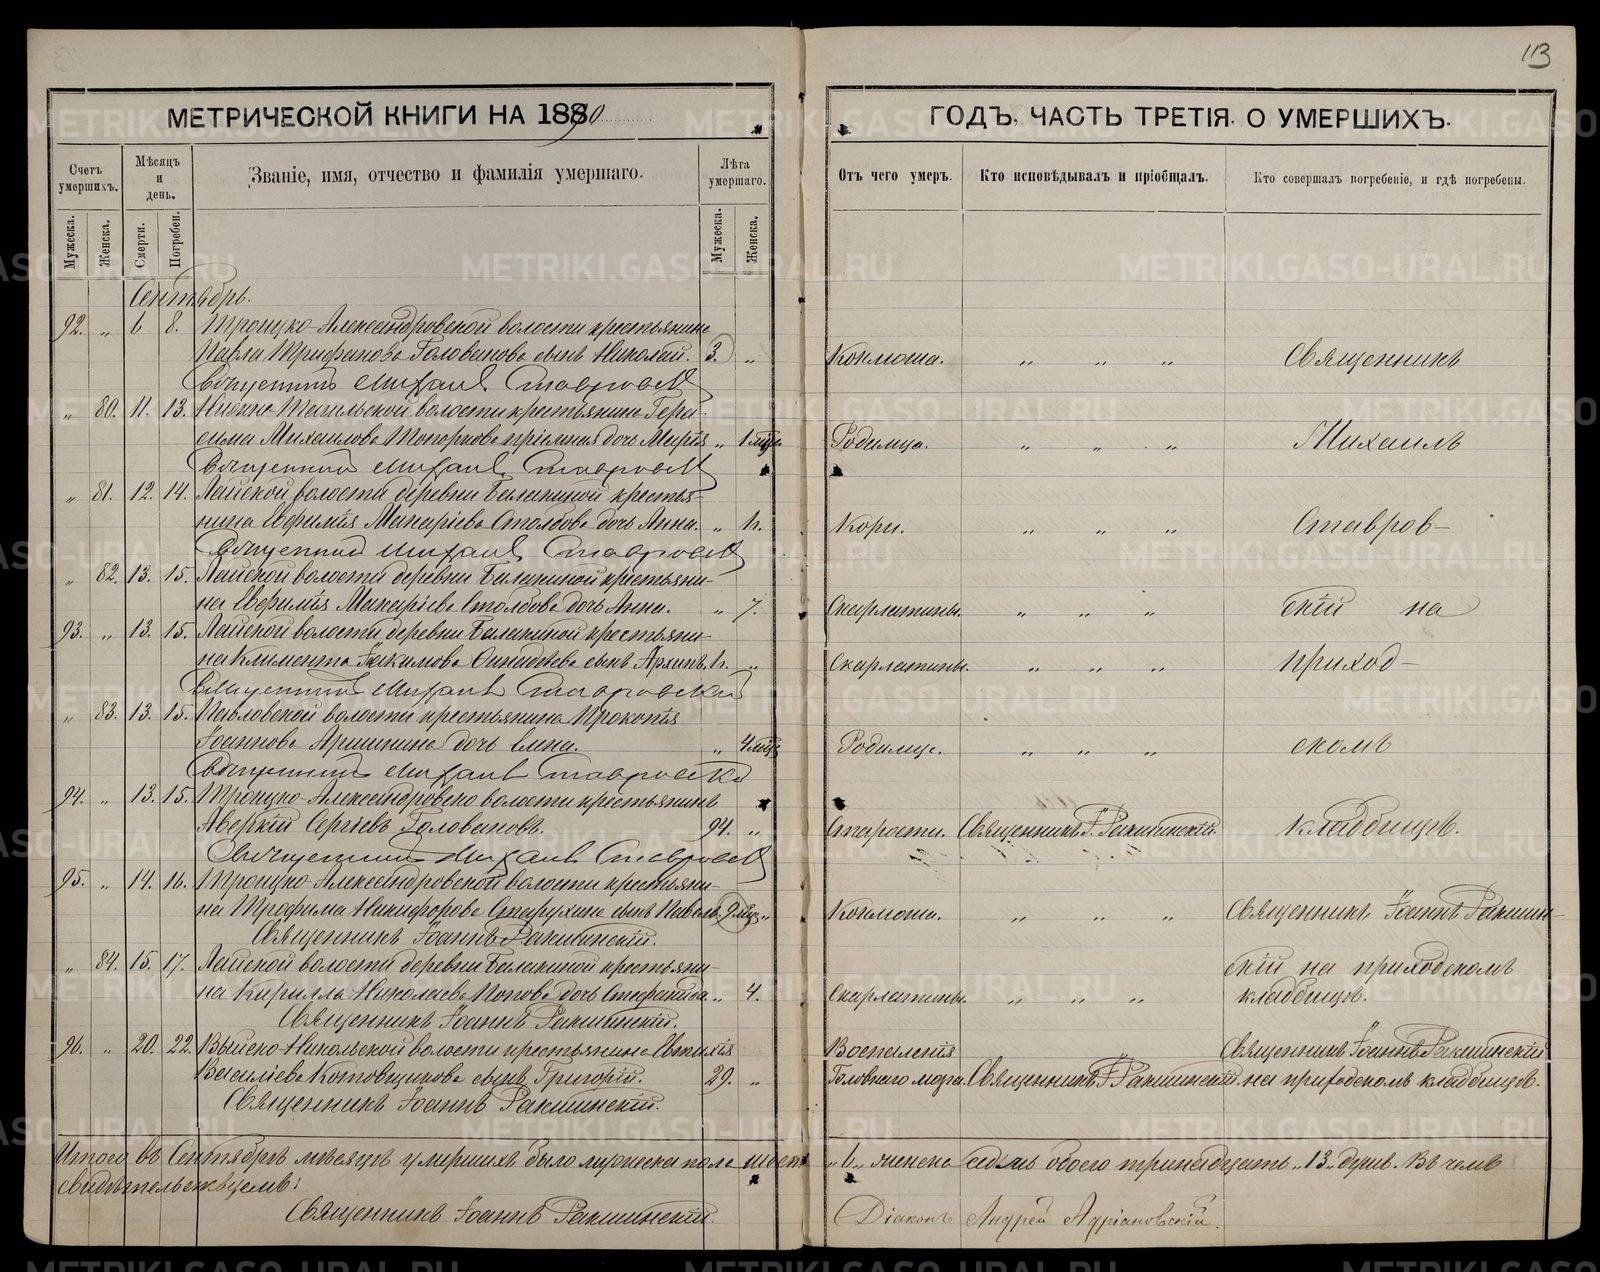 113
МЕТРИЧЕСКОЙ КНИГИ НА 1890
ГОДЪ, ЧАСТЬ ТРЕТІЯ. О УМЕРШИХЪ.
Счетъ умершихъ.
Мѣсяцъ и день.
Званіе, имя, отчество и фамилія умершаго.
Лѣта умершаго.
Отъ чего умеръ.
Кто исповѣдывалъ и пріобщалъ.
Кто совершалъ погребеніе, и гдѣ погребены.
Мужеска.
Женска.
Смерти.
Погребен.
Мужеска.
Женска.
Сентябрь.
92. „ 6 8. Троицко-Александровской волости крестьянина
Павла Трифанова Голованова сынъ Николай. 3. „ Коклюша. „ „ „ Священникъ
Священникъ Михаилъ Ставровскій
„ 80. 11. 13. Нижне-Тагильской волости крестьянина Гера-
сима Михаилова Топоркова пріемная дочь Марія „ 1 мѣс. Родимца. „ „ „ Михаилъ
Священникъ Михаилъ Ставровскій
„ 81. 12. 14. Лайской волости деревни Балакиной крестья-
нина Евфимія Макаріева Столбова дочь Анна. „ 1½. Кори. „ „ „ Ставров-
Священникъ Михаилъ Ставровскій
„ 82. 13. 15. Лайской волости деревни Балакиной крестьяни-
на Евфимія Макаріева Столбова дочь Анна. „ 7. Скарлатины. „ „ „ скій на
93. „ 13. 15. Лайской волости деревни Балакиной крестьяни-
на Климента Іакимова сынъ Архипъ. „ Скарлатины. „ „ „ приход-
Священникъ Михаилъ Ставровскій
„ 83. 13. 15. Павловской волости крестьянина Прокопія
Іоаннова дочь „ 4 мѣс. Родимца. „ „ „ скомъ
Священникъ Михаилъ Ставровскій
94. „ 13. 15. Троицко-Александровско волости крестьянинъ
Аверкій Сергіевъ Головановъ. 94. „ Старости. Священникъ І. Ракшинскій. кладбищѣ.
Священникъ Михаилъ Ставровскій
95. „ 14. 16. Троицко-Александровской волости крестьяни-
на Трофима Никифорова Старухина сынъ Павелъ. 9 мѣс. „ Коклюша. „ „ „ Священникъ Іоаннъ Ракшин-
Священникъ Іоаннъ Ракшинскій.
„ 84. 15. 17. Лайской волости деревни Балакиной крестьяни- скій на приходскомъ
на Кирилла Николаева Попова дочь Стефанида. „ 4. Скарлатины. „ „ „ кладбищѣ.
Священникъ Іоаннъ Ракшинскій.
96. „ 20. 22. Выйско-Никольской волости крестьянина Евтихія Воспаленія Священникъ Іоаннъ Ракшинскій
Василіева Котовщикова сынъ Григорій. 29. „ Головнаго мозга. Священникъ І. Ракшинскій. на приходскомъ кладбищѣ.
Священникъ Іоаннъ Ракшинскій.
Итого въ Сентябрѣ мѣсяцѣ умершихъ было мужеска пола шесть „6„ женска семь обоего тринадцать „13„ душъ. Въ чемъ
свидѣтельствуемъ:
Священникъ Іоаннъ Ракшинскій.
Діаконъ Андрей Адріановскій.
METRIKI.GASO-URAL.RU